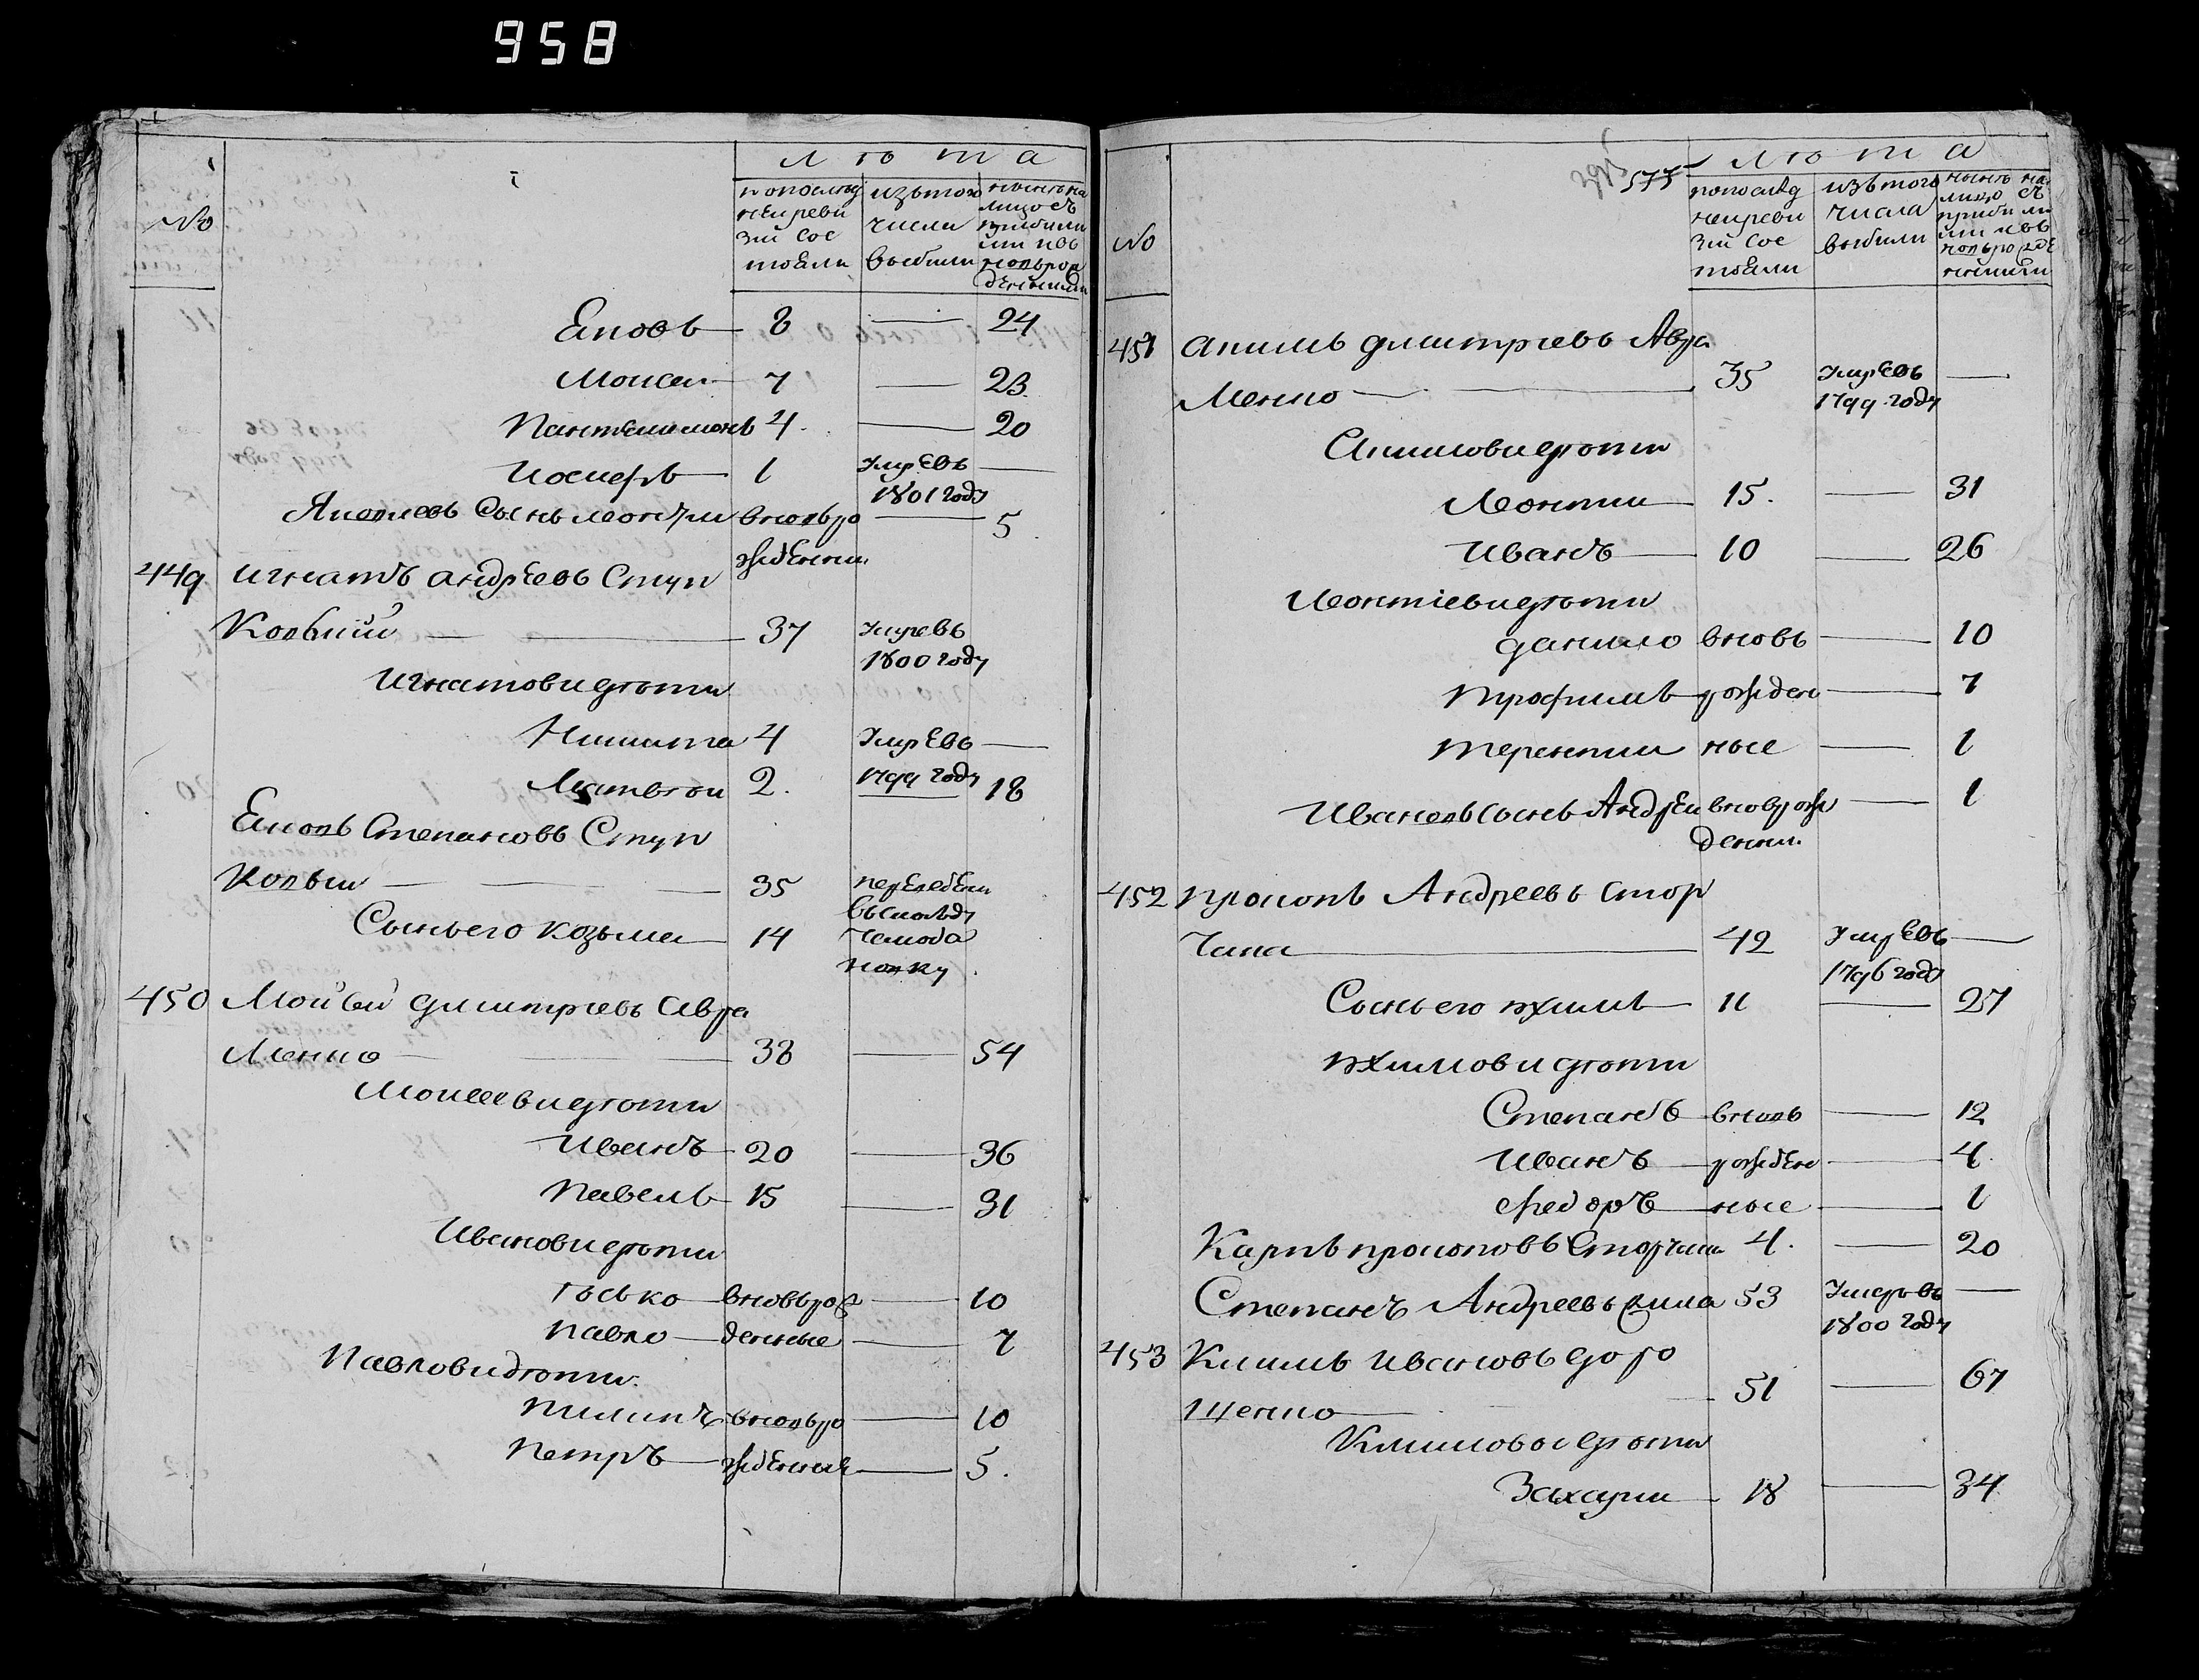 958
№
лѣта
по послѣд
ней реви
зіи сос
тояли
изътого
числа
выбыли
нынѣ на
лицо съ
прибыли
ми и въ
новь рож
денными
Яковъ 8 — 24
Моисей 7 — 23
Пантелимонъ 4 — 20
Иосифъ 1 Умре въ —
1801 году
Яковлевъ Сынъ вновь ро — 5
жденнии
449 Игнатъ Андреевъ Ступ
Ковъкий — 37 Умре въ
1800 году
Игнатови дѣти
Никита 4 Умре въ —
1799 году
Матвѣи 2. — 18
Яковъ Степановъ Ступ
Ковъки — 35
Сынъ его Козьма 14
полку
450 Мойсѣй Дмитриевъ Авра
Менко — 38 — 54
Моисееви дѣти
Иванъ 20 — 36
Павелъ 15 — 31
Иванови дѣти
Гѣсько вновь рож — 10
Павло денные — 7
Павлови дѣти
Пилипъ вновь ро — 10
Петръ жденные — 5.
575
№
лѣта
по послѣд
ней реви
зіи сос
тояли
изътого
числа
выбыли
нынѣ на
лицо съ
прибыли
ми и въ
новь рожде
нными
451 Акимъ Дмитриевъ Авра
Менко — 35 Умре въ —
1799 году
Акимови дѣти
Леонтии 15. — 31
Иванъ 10 — 26
Леонтіеви дѣти
Данило вновь — 10
Трофимъ рожден — 7
Терентии ные — 1
Ивановъ сынъ Андреи вновь рож — 1
денни.
452 Прокопъ Андреевъ Стор
Чака — 42 Умре въ —
1796 году
Сынъ его Яхимъ 11 — 27
Яхимови дѣти
Степанъ вновь — 12
Иванъ рожден — 4.
Федоръ ные — 1
Карпъ Прокоповъ Сторчака 4. — 20
Степанъ Андреевъ 53 Умеръ въ —
1800 году
453 Климъ Ивановъ Доро
Щенко — 51 — 67
Климовы дѣти
Захарии 18 — 34